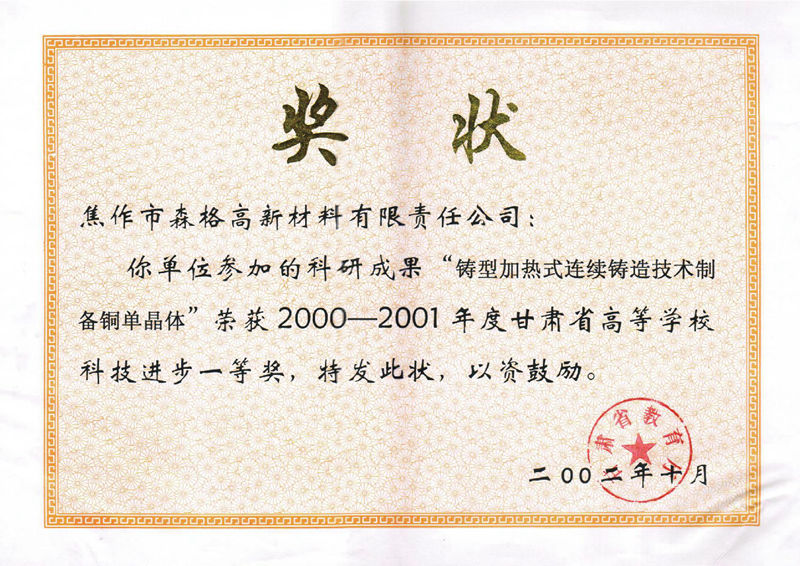 奖状
焦作市森格高新材料有限责任公司：
你单位参加的科研成果“铸型加热式连续铸造技术制
备铜单晶体”荣获2000—2001年度甘肃省高等学校
科技进步一等奖，特发此状，以资鼓励。
甘肃省教育厅
二00二年十月